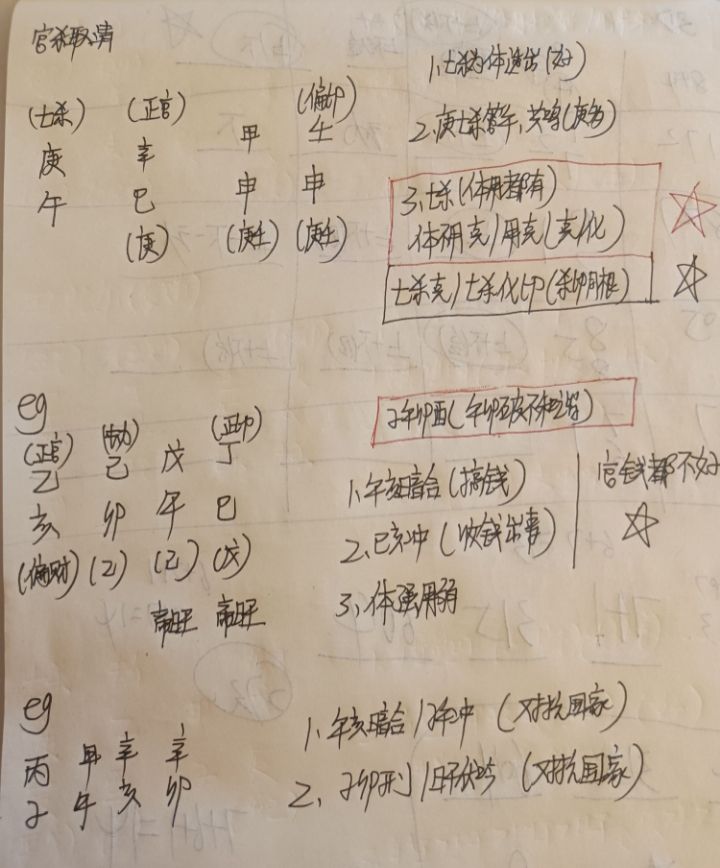 官杀取清
(七杀) (正官) (偏印)
庚 辛 甲 壬
午 巳 申 申
(庚) (庚壬) (庚壬)
1、七杀为体透出(好)
2、庚七杀管午,共鸣(庚为)
3、七杀(体用都有)
体研克/用克(克/化)
七杀克/七杀化印(杀印月根)
eg
(正官) (劫) (正印)
乙 己 戊 丁
亥 卯 午 巳
(偏财) (乙) (己) (戊)
帝旺 帝旺
子午卯酉(午卯破不和谐)
1、午亥暗合(搞钱)
2、巳亥冲(收钱出事)
3、体强用弱
官钱都不好
eg
丙 甲 辛 辛
子 午 亥 卯
1、午亥暗合/子午冲(对抗国家)
2、子卯刑/(对抗国家)